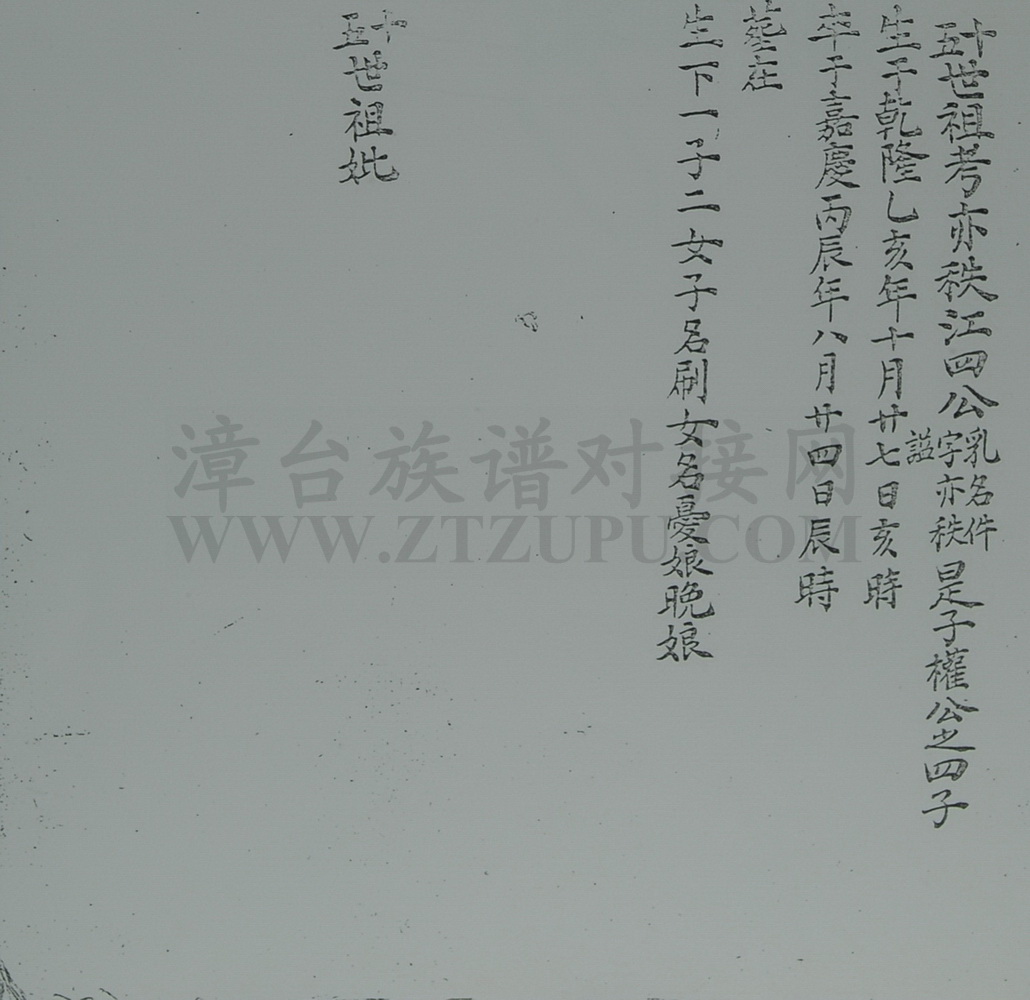 十五世祖考亦秩江四公乳名件字亦秩諡是子權公之四子
生于乾隆乙亥年十月廿七日亥時
卒于嘉慶丙辰年八月廿四日辰時
塟在
生下一子二女子名刷女名憂娘晚娘
十五世祖妣
漳台族谱对接网
WWW.ZTZUPU.COM